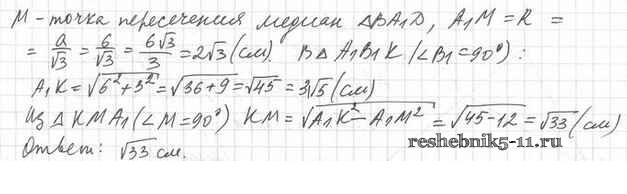 M - точка пересечения медиан △BA₁D, A₁M = R =
= a/√3 = 6/√3 = 6√3/3 = 2√3 (см). В △A₁B₁K (∠B₁=90°):
A₁K = √(6²+3²) = √(36+9) = √45 = 3√5 (см)
Из △KMA₁ (∠M=90°) KM = √(A₁K² - A₁M²) = √(45-12) = √33 (см)
Ответ: √33 см.
reshebnik5-11.ru